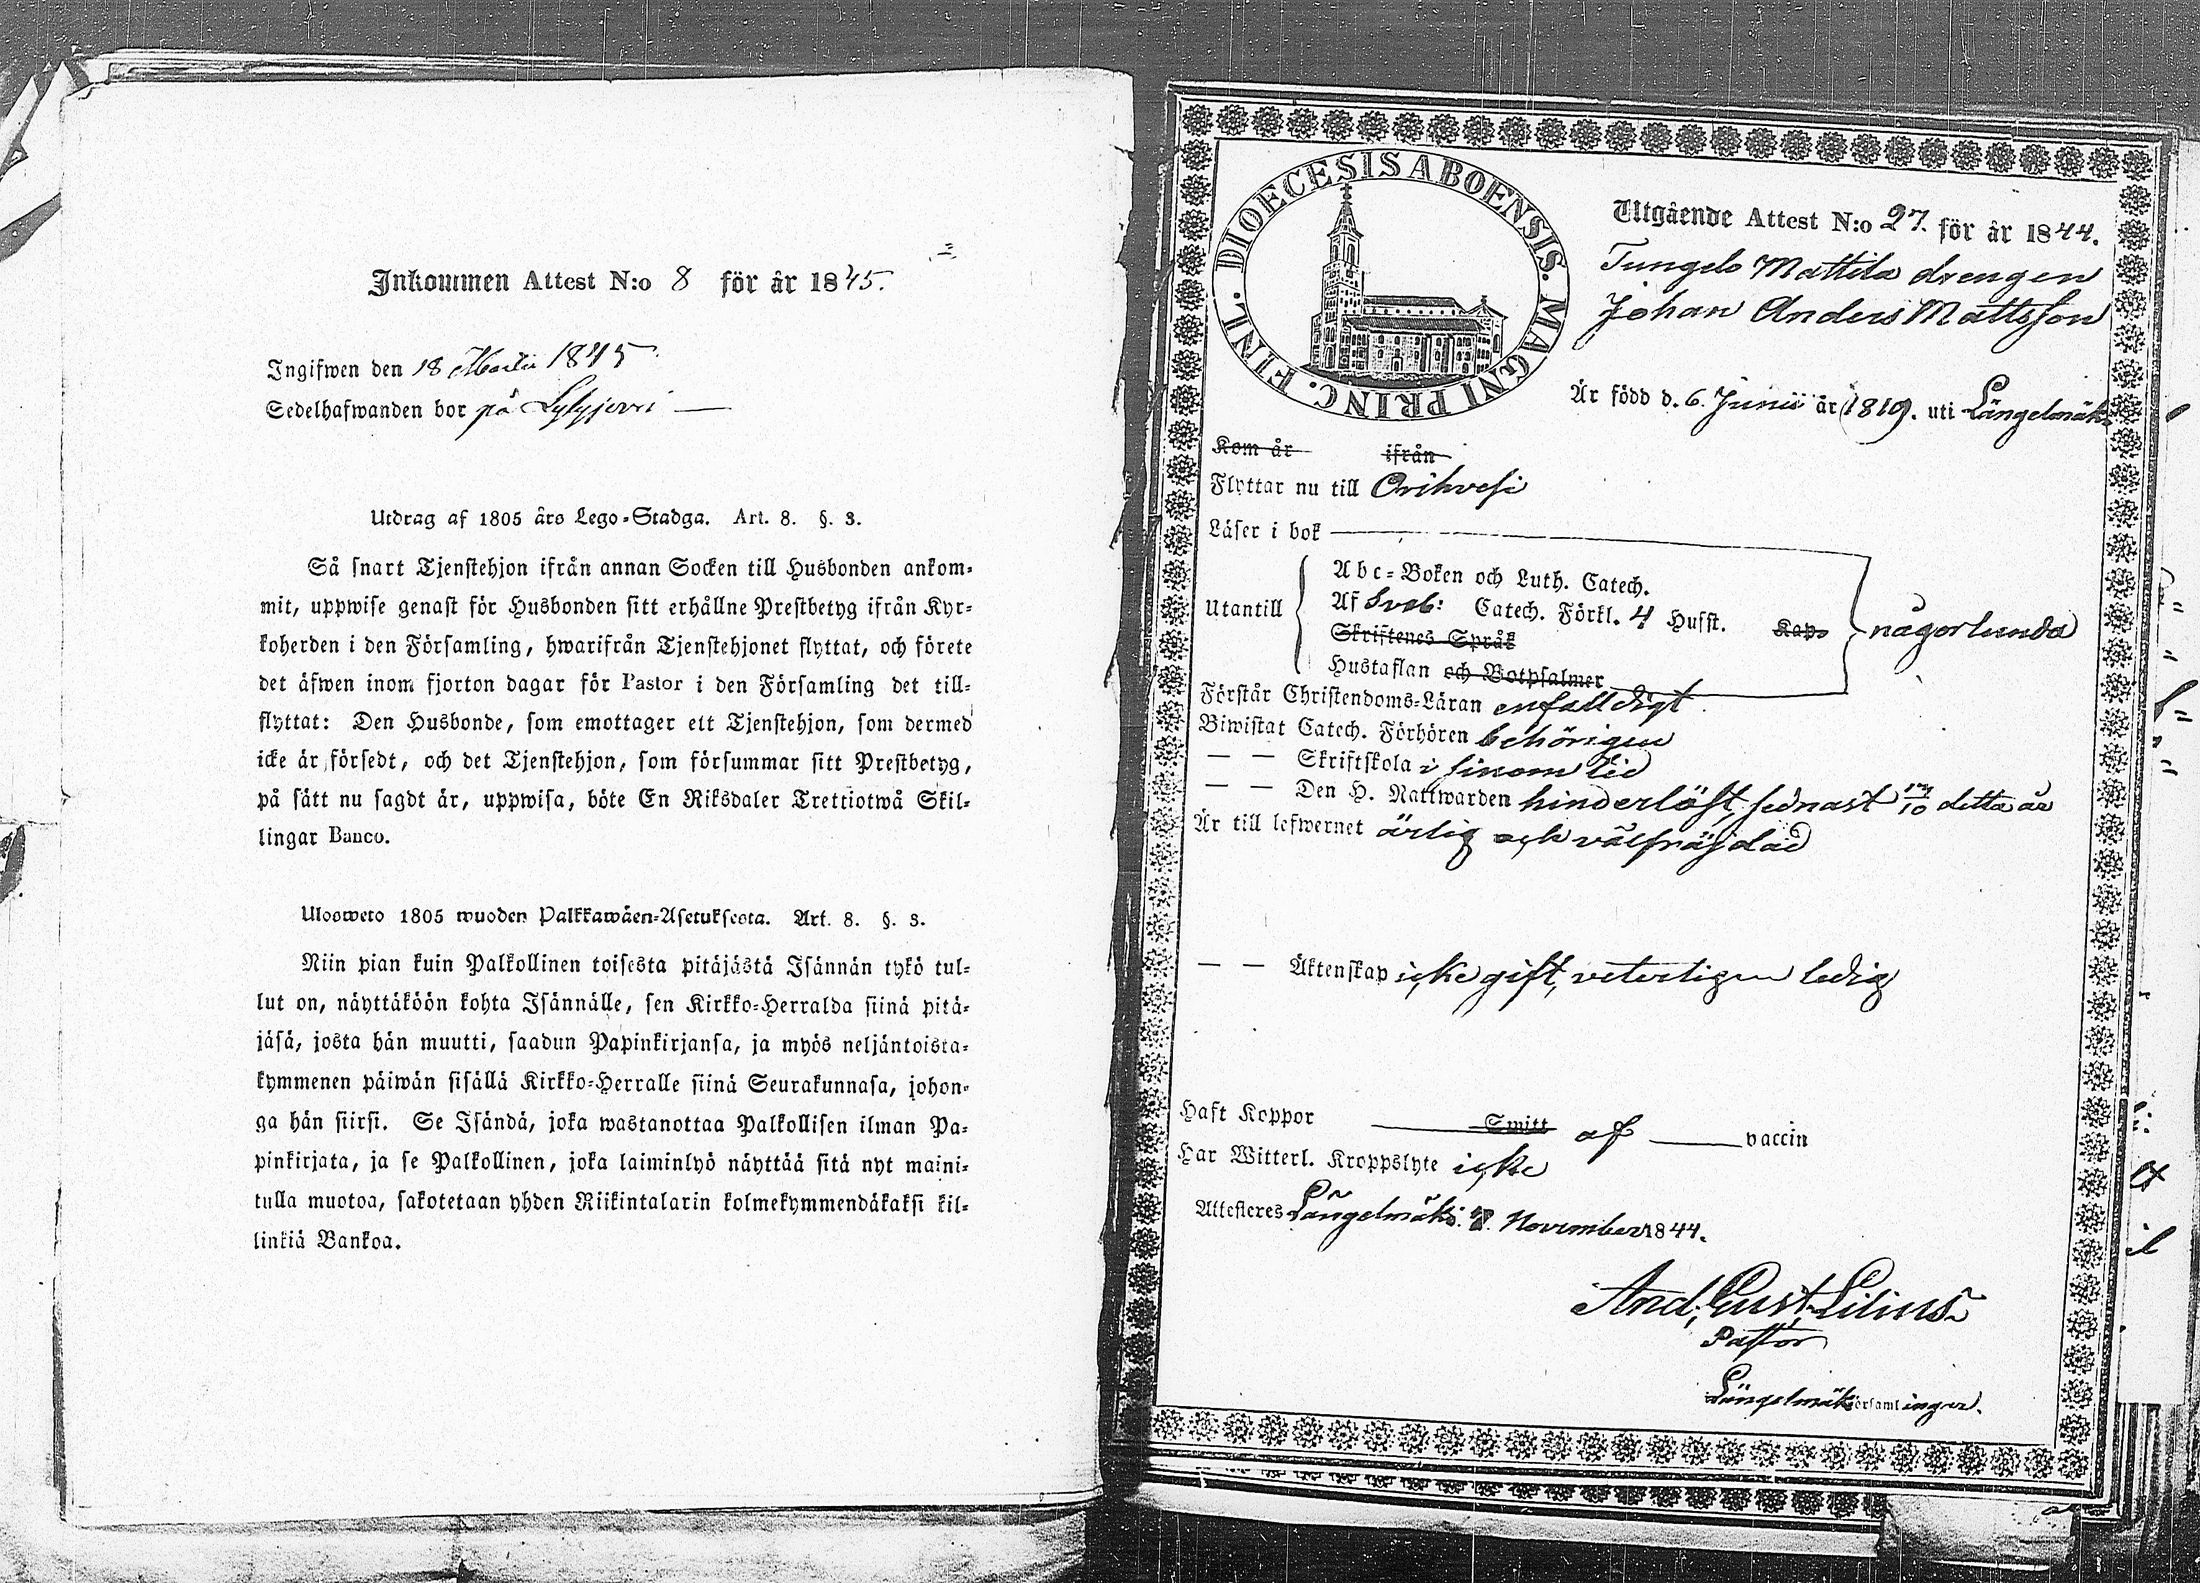 Inkommen Attest N:o 8 för år 1845.
Ingifwen den 18 Martii 1845
Sedelhafwanden bor på Lylyjervi
Utdrag af 1805 års Lego-Stadga. Art. 8. §. 3.
Så snart Tjenstehjon ifrån annan Socken till Husbonden ankom-
mit, uppwise genast för Husbonden sitt erhållne Prestbetyg ifrån Kyr-
koherden i den Församling, hwarifrån Tjenstehjonet flyttat, och förete
det äfwen inom fjorton dagar för Pastor i den Församling det till-
flyttat: Den Husbonde, som emottager ett Tjenstehjon, som dermed
icke är försedt, och det Tjenstehjon, som försummar sitt Prestbetyg,
på sätt nu sagdt är, uppwisa, böte En Riksdaler Trettiotwå Skil-
lingar Banco.
Ulosweto 1805 wuoden Palkkawäen-Asetuksesta. Art. 8. §. 3.
Niin pian kuin Palkollinen toisesta pitäjästä Isännän tykö tul-
lut on, näyttäköön kohta Isännälle, sen Kirkko-Herralda siinä pitä-
jäsä, josta hän muutti, saadun Papinkirjansa, ja myös neljäntoista-
kymmenen päiwän sisällä Kirkko-Herralle siinä Seurakunnasa, johon-
ga hän siirsi. Se Isändä, joka wastanottaa Palkollisen ilman Pa-
pinkirjata, ja se Palkollinen, joka laiminlyö näyttää sitä nyt maini-
tulla muotoa, sakotetaan yhden Riikintalarin kolmekymmendäkaksi kil-
linkiä Bankoa.
DIOECESIS ABOENSIS. MAGNI PRINC. FINL.
Utgående Attest N:o 27. för år 1844.
Tungelo Mattila drengen
Johan Anders Mattsson
Är född d. 6. Junii år 1819. uti Längelmäki
Kom år ifrån
Flyttar nu till Orihvesi
Läser i bok
Utantill
Abc-Boken och Luth. Catech.
Af Sveb: Catech. Förkl. 4 Husst. Kap.
Skriftenes Språk
Hustaflan och Botpsalmer
någorlunda
Förstår Christendoms-Läran enfalldigt
Biwistat Catech. Förhören behörigen
— — Skriftskola i sinom tid
— — Den H. Nattwarden hinderlöst, sednast detta år
Är till lefwernet ärlig och välfräjdad
— — Äktenskap icke gift, veterligen ledig
Haft Koppor Smitt af vaccin
Har Witterl. Kroppslyte icke
Attesteres Längelmäki. November 1844.
And. Gust. Lilius
Pastor
Längelmäki församlingar.